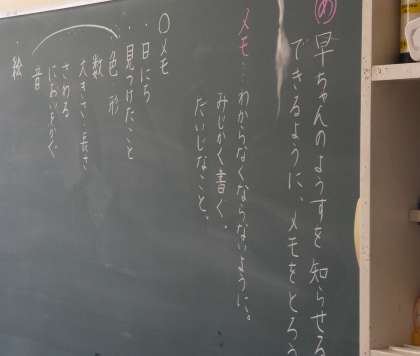 め 早ちゃんのようすを知らせる
できるように、メモをとろう
メモ…わからなくならないように。
みじかく書く。
だいじなこと。
○メモ
・日にち
・見つけたこと
色 形
数
大きさ・長さ
さわる
においをかぐ
音
・絵